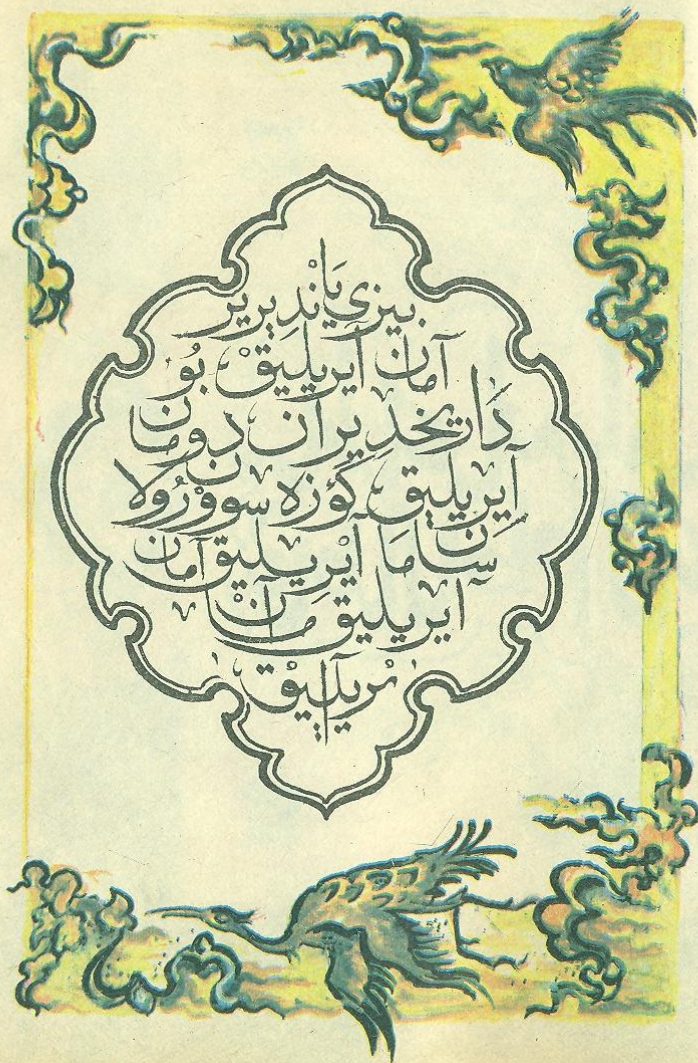 بیزی یاندیریر
آمان آیریلیق بو
داریخدیران دومان
آیریلیق گؤزه سوورولان
سامان آیریلیق آمان
آیریلیق آمان
آیریلیق